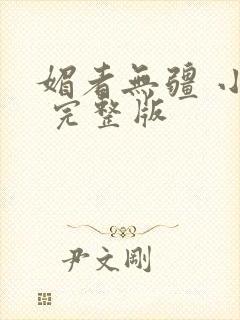 媚者無疆 小
完整版
尹文剛